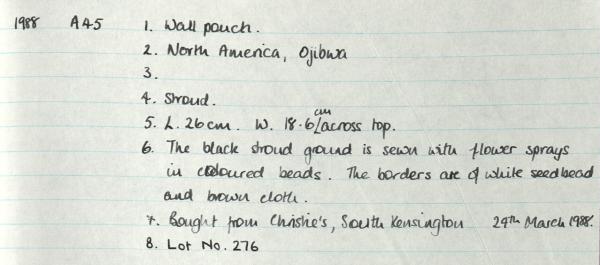 1988 A45 1. Wall pouch.
2. North America, Ojibwa
3.
4. Stroud.
5. L. 26cm. W. 18.6cm across top.
6. The black stroud ground is sewn with flower sprays
in coloured beads. The borders are of white seedbead
and brown cloth.
7. Bought from Christie's, South Kensington 24th March 1988.
8. Lot No. 276